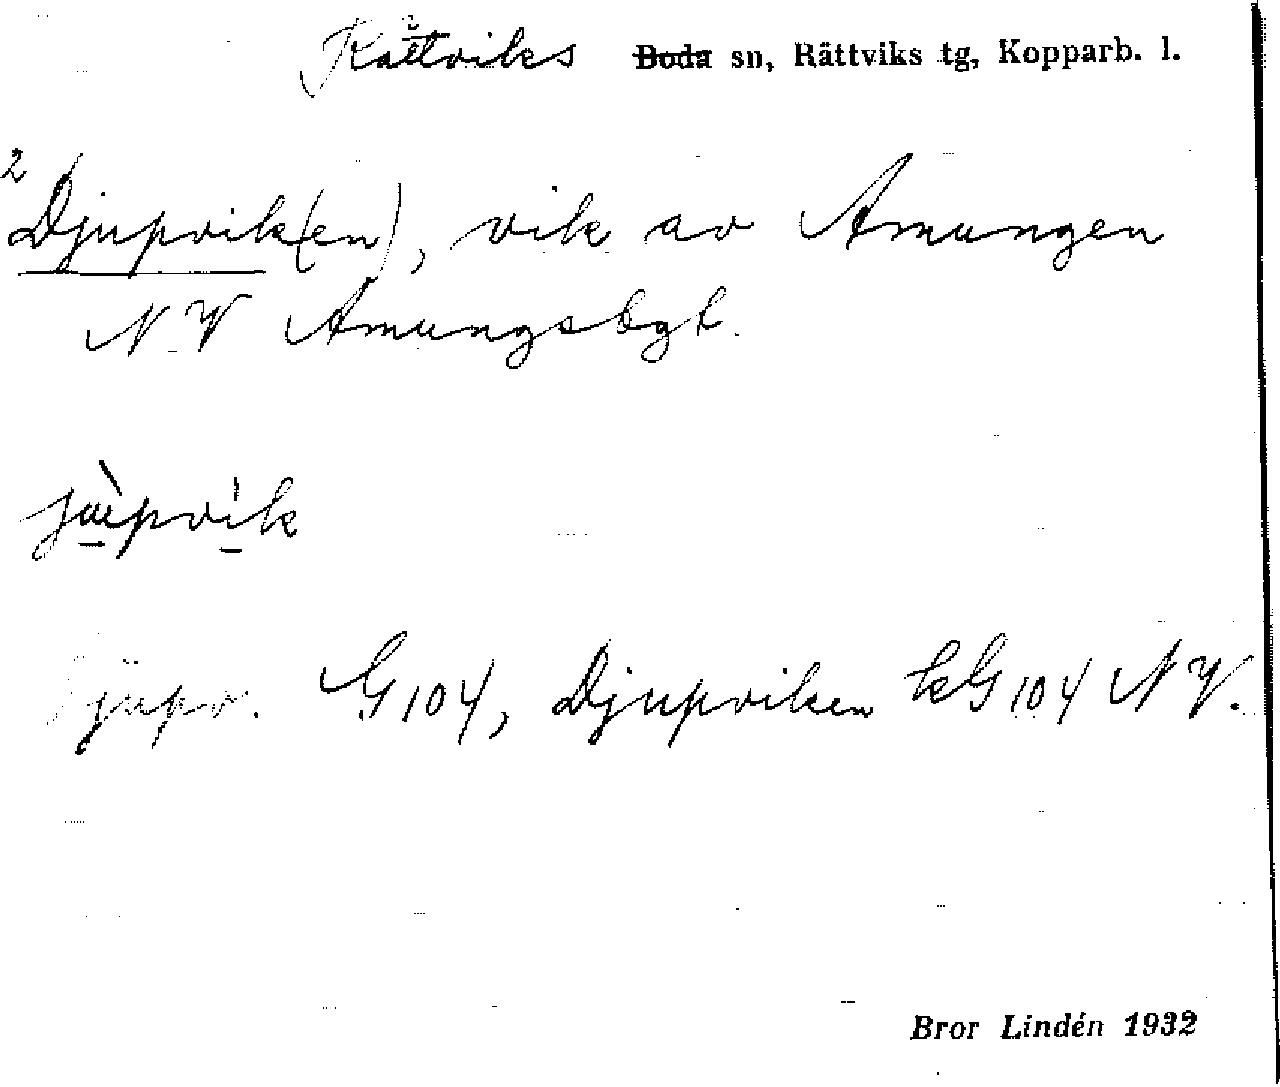 Rättviks Boda sn, Rättviks tg, Kopparb. l.
2 Djupvik(en), vik av Amungen
NV Amungsbgt.
Djupv. G104, Djupviken kG104 NV.
Bror Lindén 1932